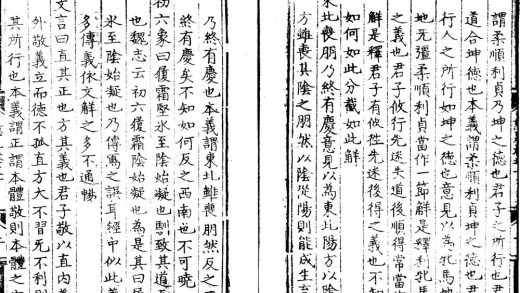 謂柔順利貞乃坤之德也君子之所行也
道合坤德也本義謂柔順利貞坤之德也
行人之所行如坤之德也意見以為牝馬地
地无彊柔順利貞當作一節解是釋利牝馬
之義也君子攸行先迷失道後順得常當
解是釋君子有攸往先迷後得之義也不知
如何如此分截如此解
東北喪朋乃終有慶意見以為東北陽方以陰
方雖喪其陰之朋然以陰從陽則能成生
乃終有慶也本義謂東北雖喪朋然反之
終有慶矣不知如何反之西南也不可曉
初六象曰履霜堅氷至陰始凝也馴致其道至
也魏志云初六履霜陰始凝也為是其曰
氷至陰始凝也乃傳寫之誤耳經中似此
多傳義依文解之多不通暢
文言曰直其正也方其義也君子敬以直內
外敬義立而德不孤直方大不習无不利則
其所行也本義謂正謂本體敬則本體之